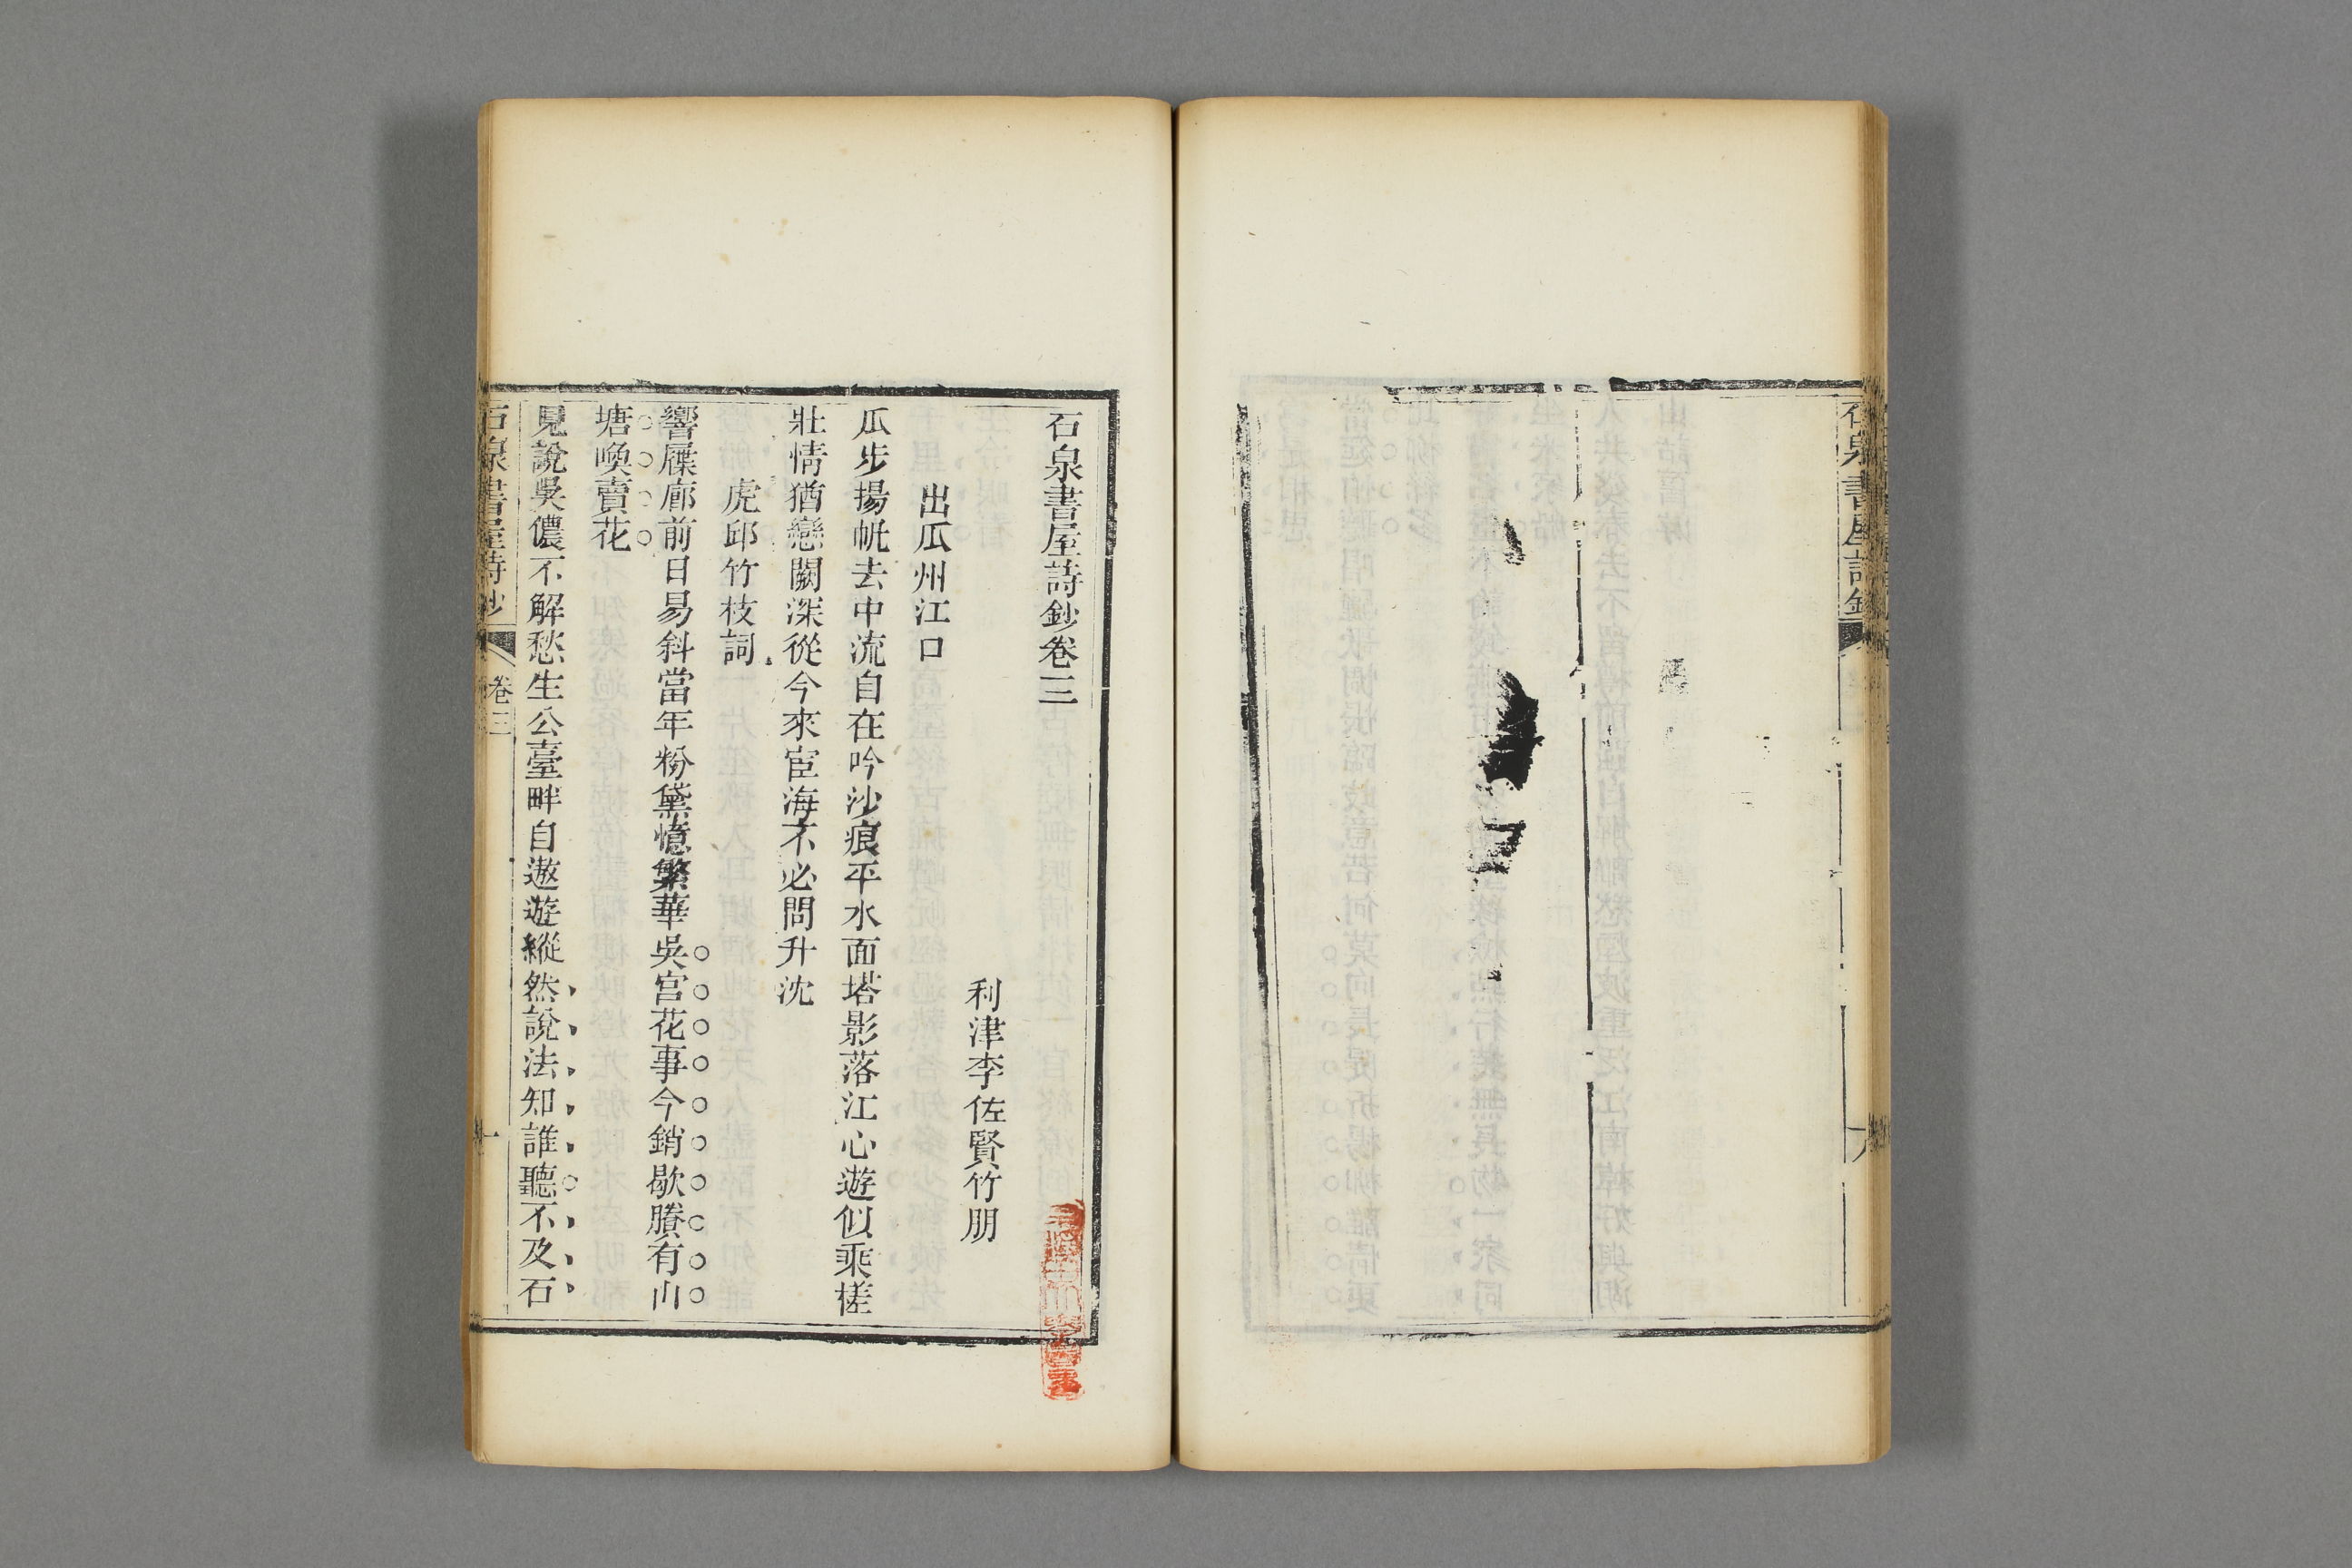 石泉書屋詩鈔
石泉書屋詩鈔卷三
利津李佐賢竹朋
出瓜州江口
瓜步揚帆去中流自在吟沙痕平水面塔影落江心遊似乘槎
壯情猶戀闕深從今來宦海不必問升沈
虎邱竹枝詞
響屧廊前日易斜當年粉黛憶繁華吳宮花事今銷歇賸有山
塘喚賣花
見說吳儂不解愁生公臺畔自遨遊縱然說法知誰聽不及石
石泉書屋詩鈔
卷三
一